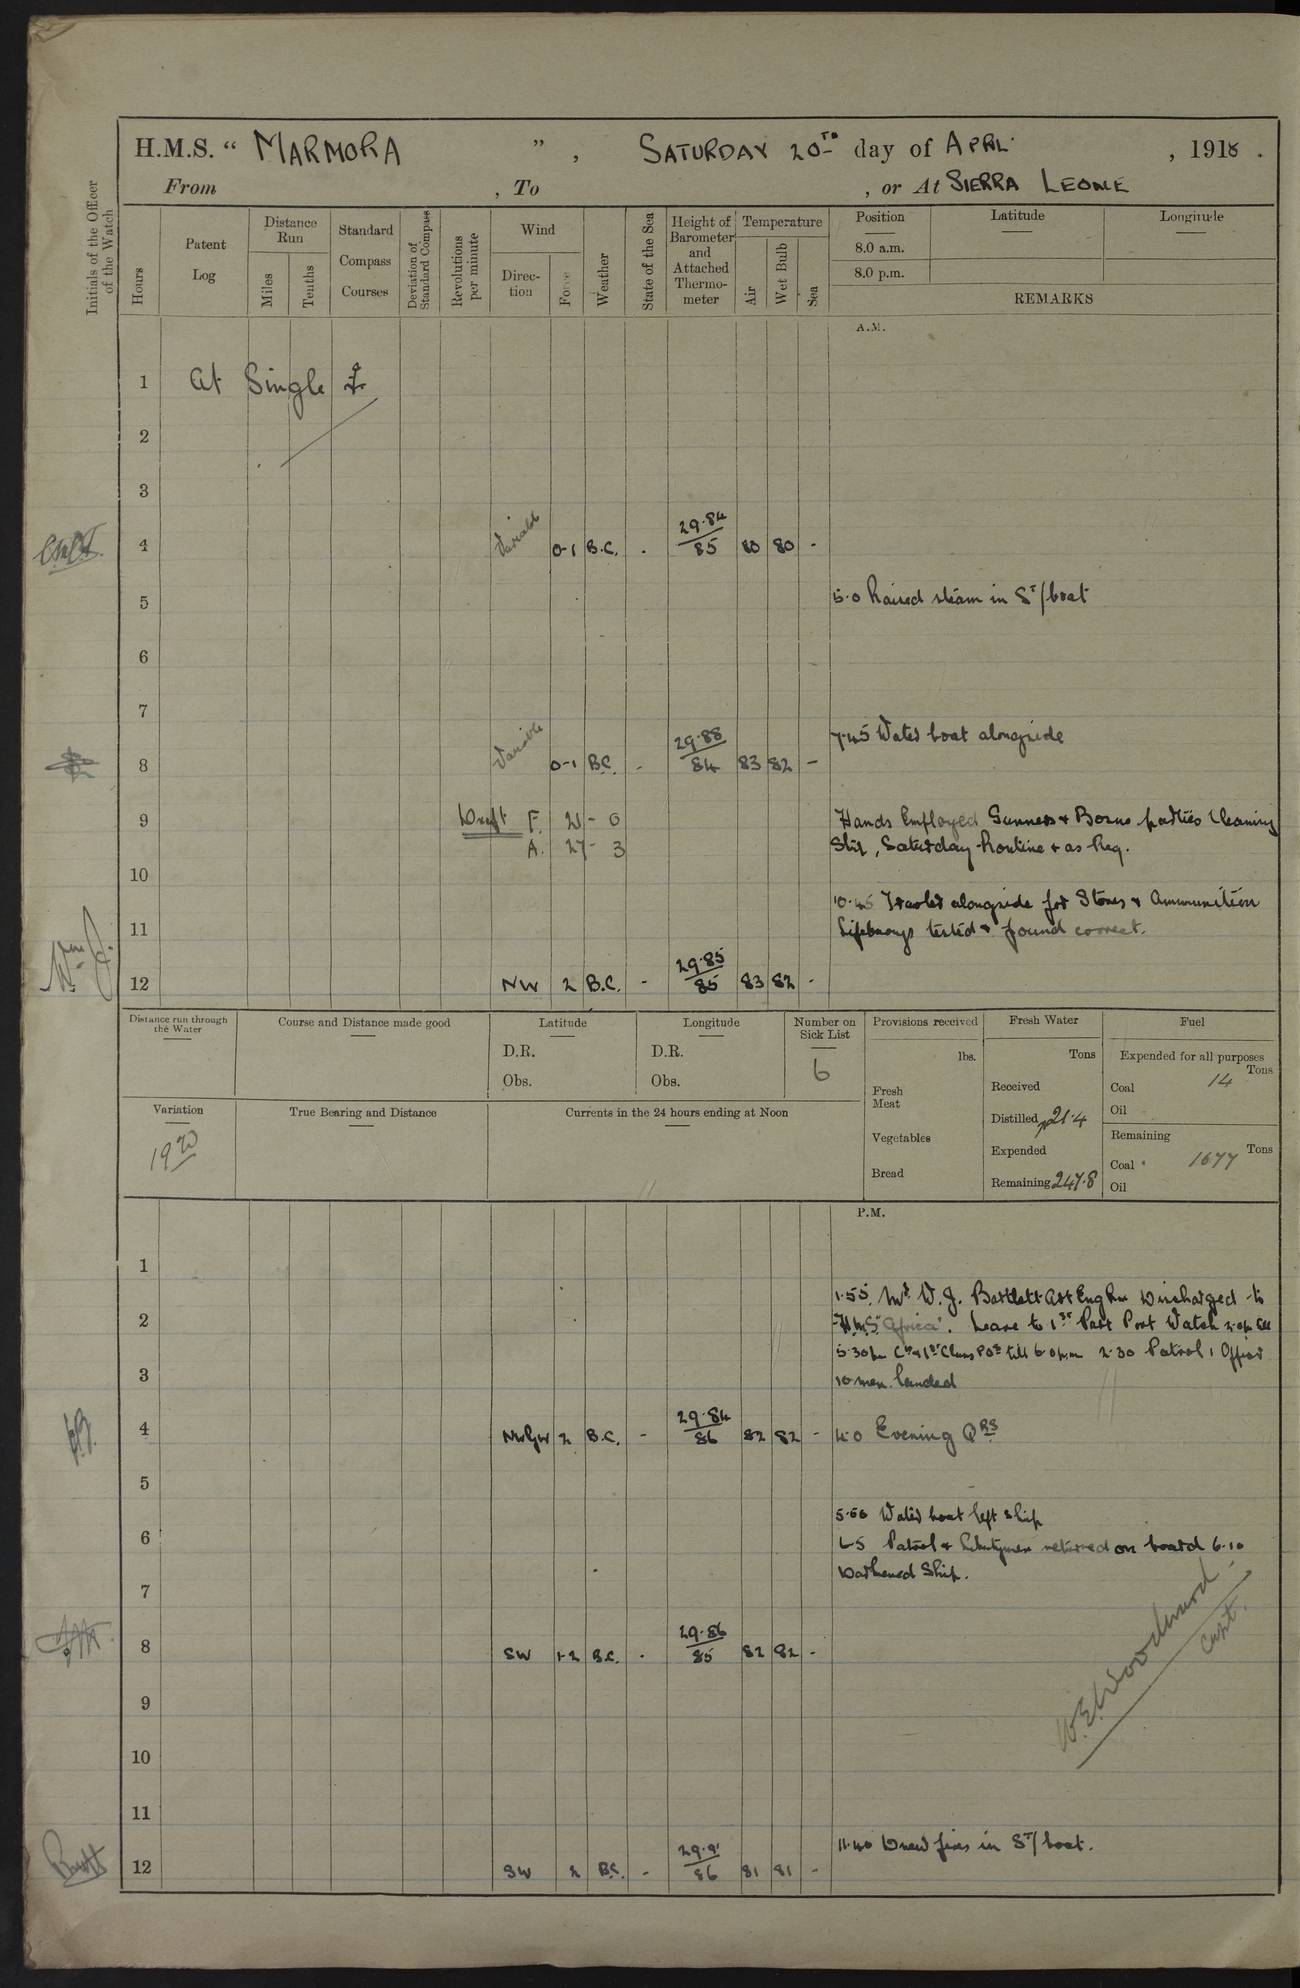 H.M.S. “ MARMORA ” , SATURDAY 20TH day of APRIL , 1918 .
From , To , or At SIERRA LEONE
Initials of the Officer of the Watch
Hours
Patent Log
Distance Run
Miles
Tenths
Standard Compass Courses
Deviation of Standard Compass
Revolutions per minute
Wind
Direc- tion
Force
Weather
State of the Sea
Height of Barometer and Attached Thermo- meter
Temperature
Air
Wet Bulb
Sea
Position
Latitude
Longitude
8.0 a.m.
8.0 p.m.
REMARKS
A.M.
1 At Single
2
3
4 Variable 0-1 B.C. - 29.84 85 80 80 -
5 5.0 Raised steam in ST/boat
6
7
7.45 Water boat alongside
8 Variable 0-1 B.C. - 29.88 84 83 82 -
9 Draft F. 21 - 0
A. 27 - 3
Hands Employed Gunners & Bosns parties Cleaning
Ship, Saturday Routine & as Req.
10
10.45 alongside for Stores & Ammunition
11 Lifebuoys tested & found correct.
12 NW 2 B.C. - 29.85 85 83 82 -
Distance run through the Water
Course and Distance made good
Latitude
D.R.
Obs.
Longitude
D.R.
Obs.
Number on Sick List
6
Provisions received
lbs.
Fresh Meat
Vegetables
Bread
Fresh Water
Tons
Received
Distilled 21.4
Expended
Remaining 247.8
Fuel
Expended for all purposes
Tons
Coal 14
Oil
Remaining
Tons
Coal 1677
Oil
Variation
True Bearing and Distance
Currents in the 24 hours ending at Noon
P.M.
1
1.55 Mr W.J. Bartlett Discharged to
2 "H.M.S. Africa". Leave to 1st Part Port Watch till
5.30pm 1st Class POs till 6.0 p.m 2.30 Patrol 1 Officer
3 10 men landed
4 2 B.C. - 29.84 86 82 82 - 4.0 Evening QRS
5
Water boat left ship
6 Patrol & Libertymen returned on board 6.10
Darkened Ship.
7
8 SW 1-2 B.C. - 29.86 85 82 82 -
W.E. Woodward
Capt.
9
10
11
11.40 Drew fires in ST/boat.
12 SW 2 B.C. - 29.91 86 81 81 -